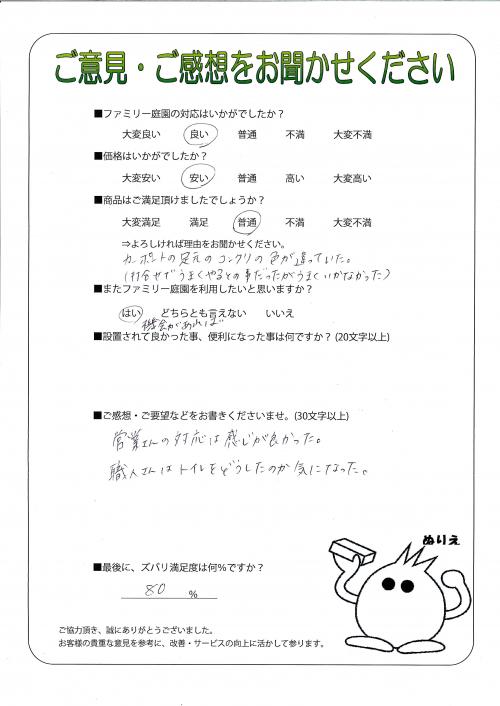 ご意見・ご感想をお聞かせください
■ファミリー庭園の対応はいかがでしたか？
大変良い 良い 普通 不満 大変不満
■価格はいかがでしたか？
大変安い 安い 普通 高い 大変高い
■商品はご満足頂けましたでしょうか？
大変満足 満足 普通 不満 大変不満
⇒よろしければ理由をお聞かせください。
カーポートの足元のコンクリの色が違っていた。
(打合せでうまくやるとの事だったがうまくいかなかった)
■またファミリー庭園を利用したいと思いますか？
はい どちらとも言えない いいえ
機会があれば
■設置されて良かった事、便利になった事は何ですか？(20文字以上)
■ご感想・ご要望などをお書きくださいませ。(30文字以上)
営業さんの対応は感じが良かった。
職人さんはトイレをどうしたのか気になった。
ぬりえ
■最後に、ズバリ満足度は何％ですか？
80 ％
ご協力頂き、誠にありがとうございました。
お客様の貴重な意見を参考に、改善・サービスの向上に活かして参ります。